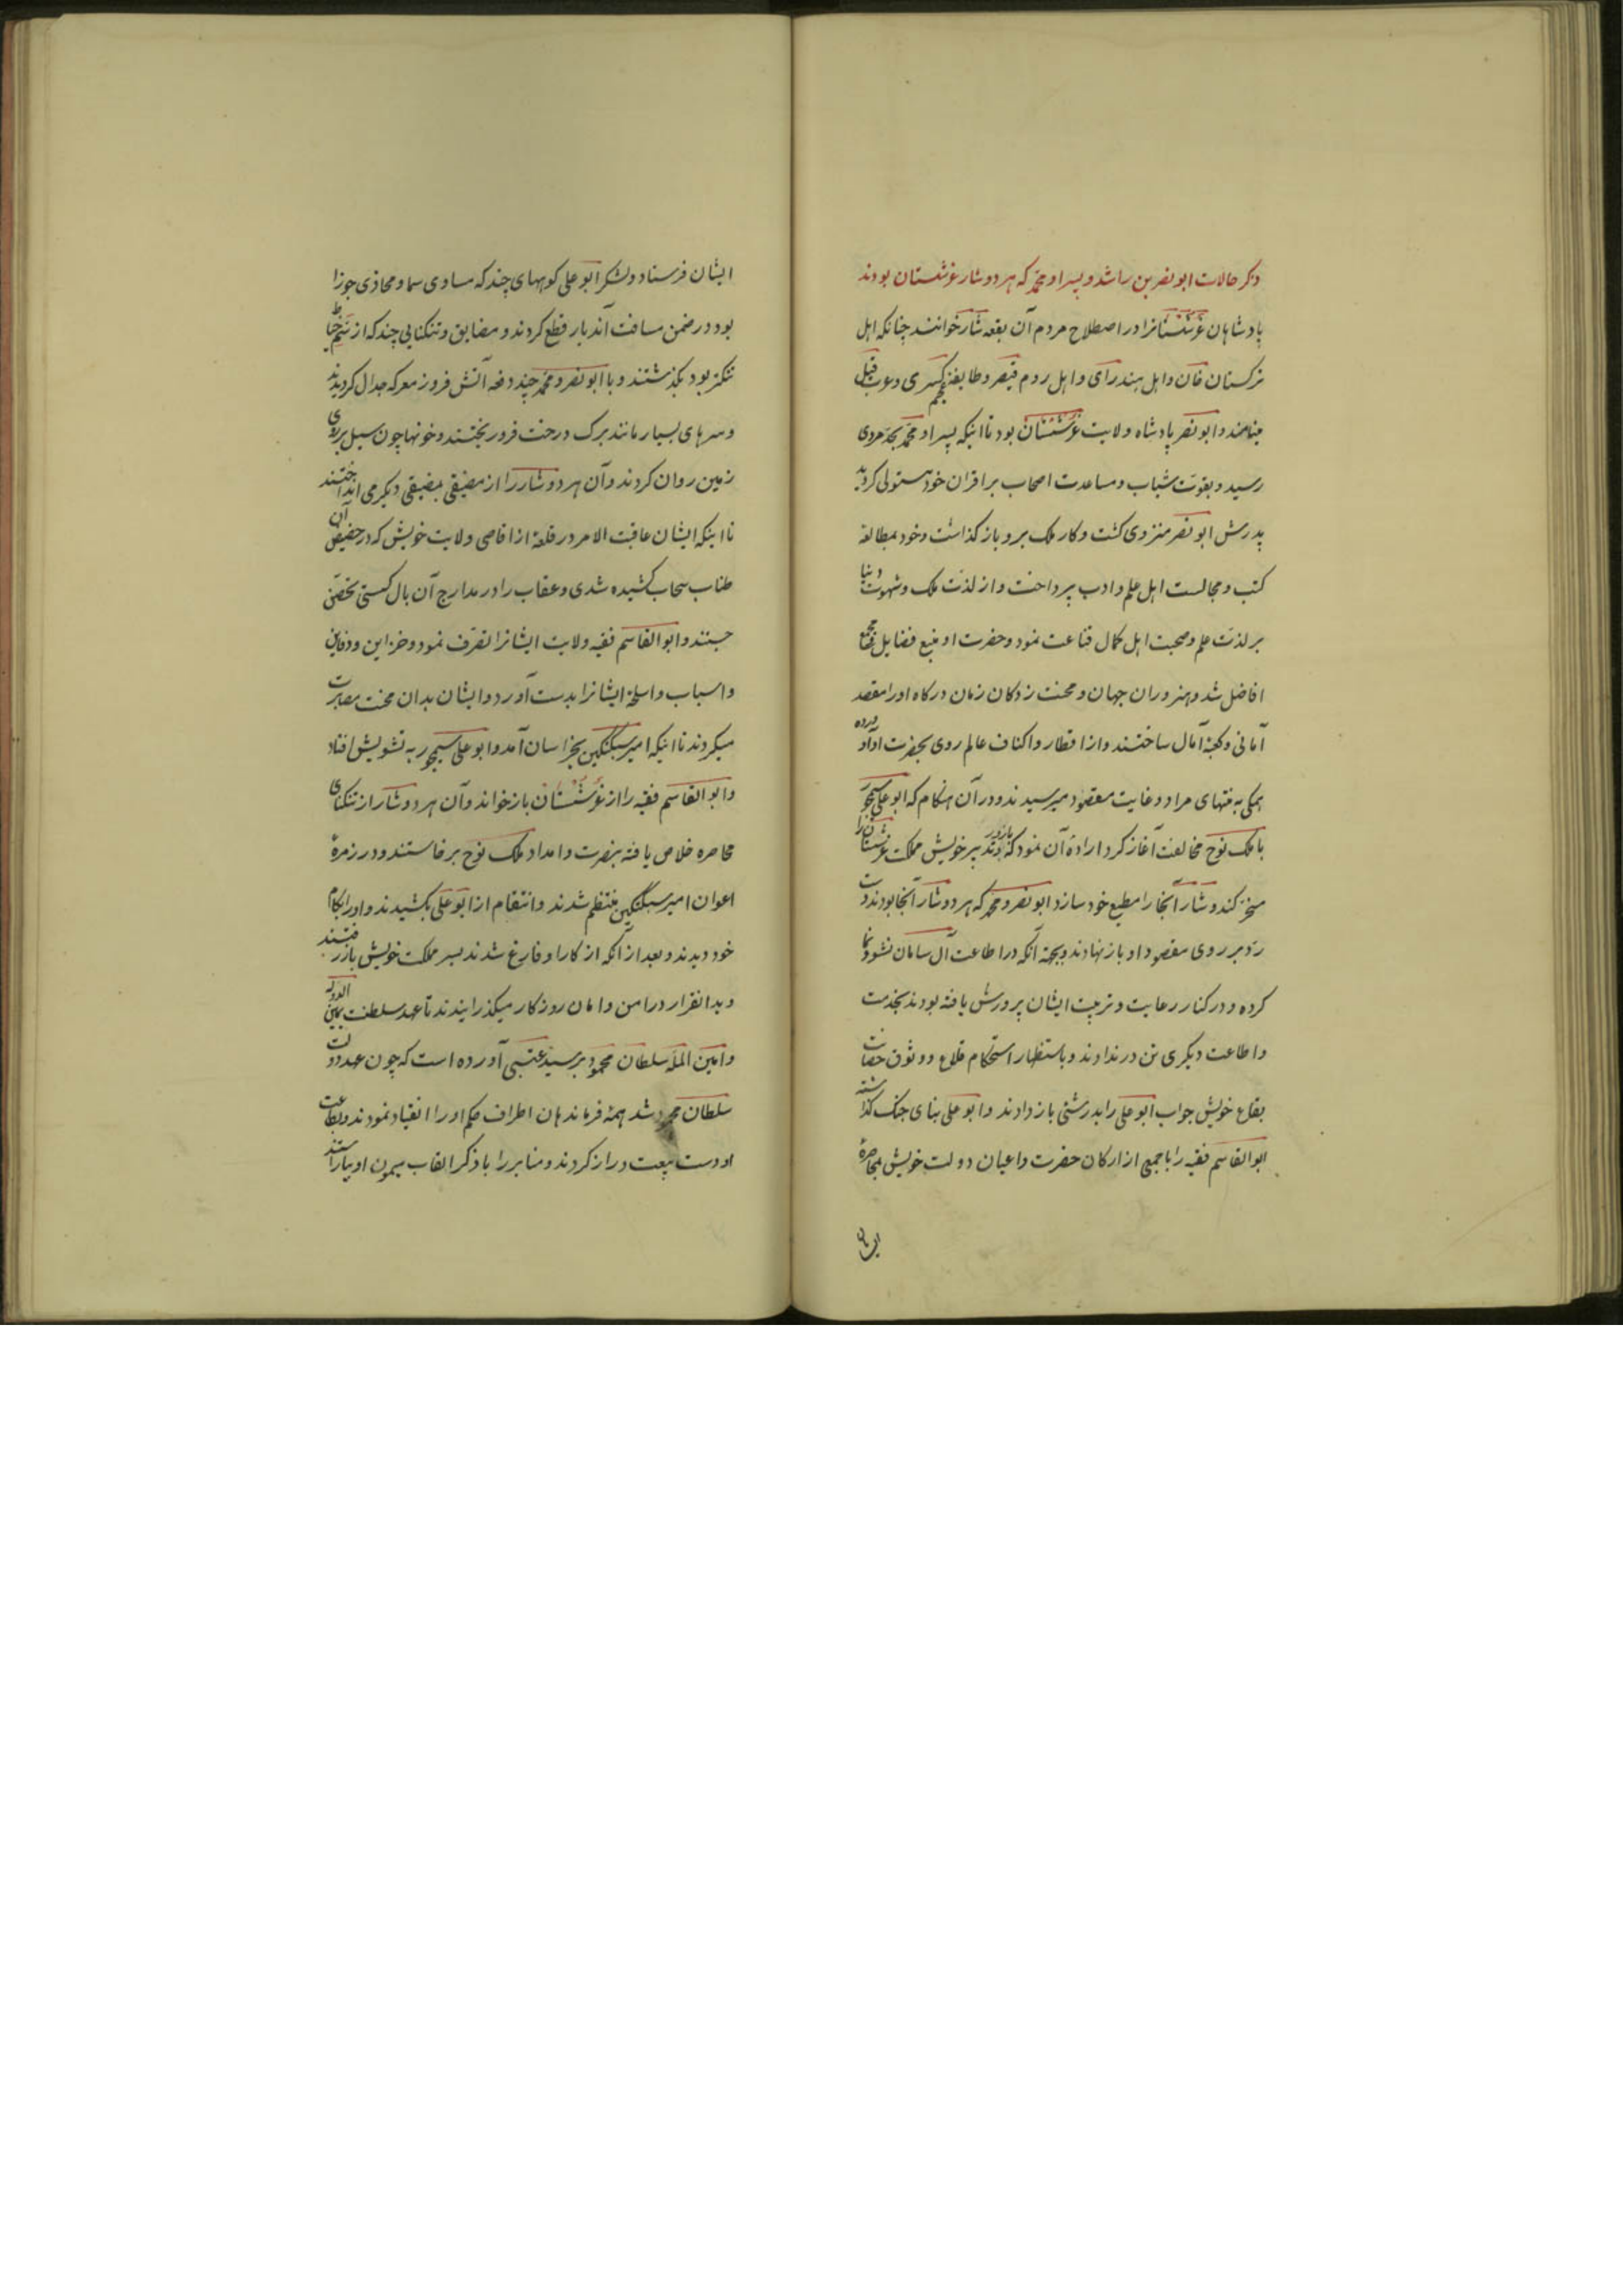 ذکر حالات ابو نصر بن راشد و پسر او محمد که هر دو شار غرشستان بودند
پادشاهان غرشستانرا در اصطلاح مردم آن بقعه شار خوانند چنانکه اهل
ترکستان خان و اهل هند رای و اهل روم قیصر و طایفۀ عجم کسری و عرب قیل
میخوانند و ابو نصر پادشاه ولایت غرشستان بود تا اینکه پسر او محمد بحد مردی
رسید و بقوت شباب و مساعدت اصحاب بر اقران خود مستولی کردید
پدرش ابو نصر منزوی کشت و کار ملک برو باز کذاشت و خود بمطالعۀ
کتب و مجالست اهل علم و ادب پرداخت و از لذت ملک و شهوت دنیا
بر لذت علم و صحبت اهل کمال قناعت نمود و حضرت او منبع فضایل و مجمع
افاضل شد و هنروران جهان و محنت زدکان زمان درکاه او را مقصد
آمانی و کعبۀ آمال ساختند و از اقطار و اکناف عالم روی بحضرت او آورده
همکی به منتهای مراد و غایت مقصود میرسیدند و در آن هنکام که ابو علی سیمجور
با ملک نوح مخالفت آغاز کرد ارادۀ آن نمود که بازور خویش مملکت غرشستان را
مسخر کند و شار آنجا را مطیع خود سازد ابو نصر و محمد که هر دو شار آنجا بودند دست
رد بر روی مقصود او باز نهادند و بجهة آنکه در اطاعت آل سامان نشو و نما
کرده و در کنار رعایت و تربیت ایشان پرورش یافته بودند بخدمت
و اطاعت دیکری تن در ندادند و باستظهار استحکام قلاع و وثوق حصانت
بقاع خویش جواب ابو علی را بدرشتی باز دادند و ابو علی بنای جنک کذاشته
ابو القاسم فقیه را با جمعی از ارکان حضرت و اعیان دولت خویش بمحاصرۀ
ایشان
ایشان فرستاد و لشکر ابو علی کوههای چند که مساوی سما و محاذی جوزا
بود در ضمن مسافت آندیار قطع کردند و مضایق و تنکنایی چند که از سم خیاط
تنکتر بود بکذشتند و با ابو نصر و محمد چند دفعه آتش فروز معرکه جدال کردیدند
و سرهای بسیار مانند برک درخت فرو ریختند و خونها چون سیل بر روی
زمین روان کردند و آن هر دو شار را از مضیقی بمضیقی دیکر می انداختند
تا اینکه ایشان عاقبت الامر در قلعۀ از اقاصی ولایت خویش که در حضیض آن
طناب سحاب کشیده شدی و عقاب را در مدارج آن بال کسستی تحصن
جستند و ابو القاسم فقیه ولایت ایشانرا تصرف نمود و خزاین و دفاین
و اسباب و اسلحۀ ایشانرا بدست آورد و ایشان بدان محنت مصابرت
میکردند تا اینکه امیر سبکتکین بخراسان آمد و ابو علی سیمجور به تشویش افتاد
و ابو القاسم فقیه را از غرشستان باز خواند و آن هر دو شار از تنکنای
محاصره خلاص یافته بنصرت و امداد ملک نوح برخاستند و در زمرۀ
اعوان امیر سبکتکین منتظم شدند و انتقام از ابو علی بکشیدند و او را بکام
خود دیدند و بعد از آنکه از کار او فارغ شدند بسر مملکت خویش باز رفتند
و بدانقرار در امن و امان روزکار میکذرانیدند تا عهد سلطنت یمین الدوله
و امین المله سلطان محمود بر سید عتبی آورده است که چون عهد دولت
سلطان محمود شد همۀ فرماندهان اطراف حکم او را انقیاد نمودند و بطاعت
او دست بیعت دراز کردند و منابر را با ذکر القاب میمون او بیاراستند